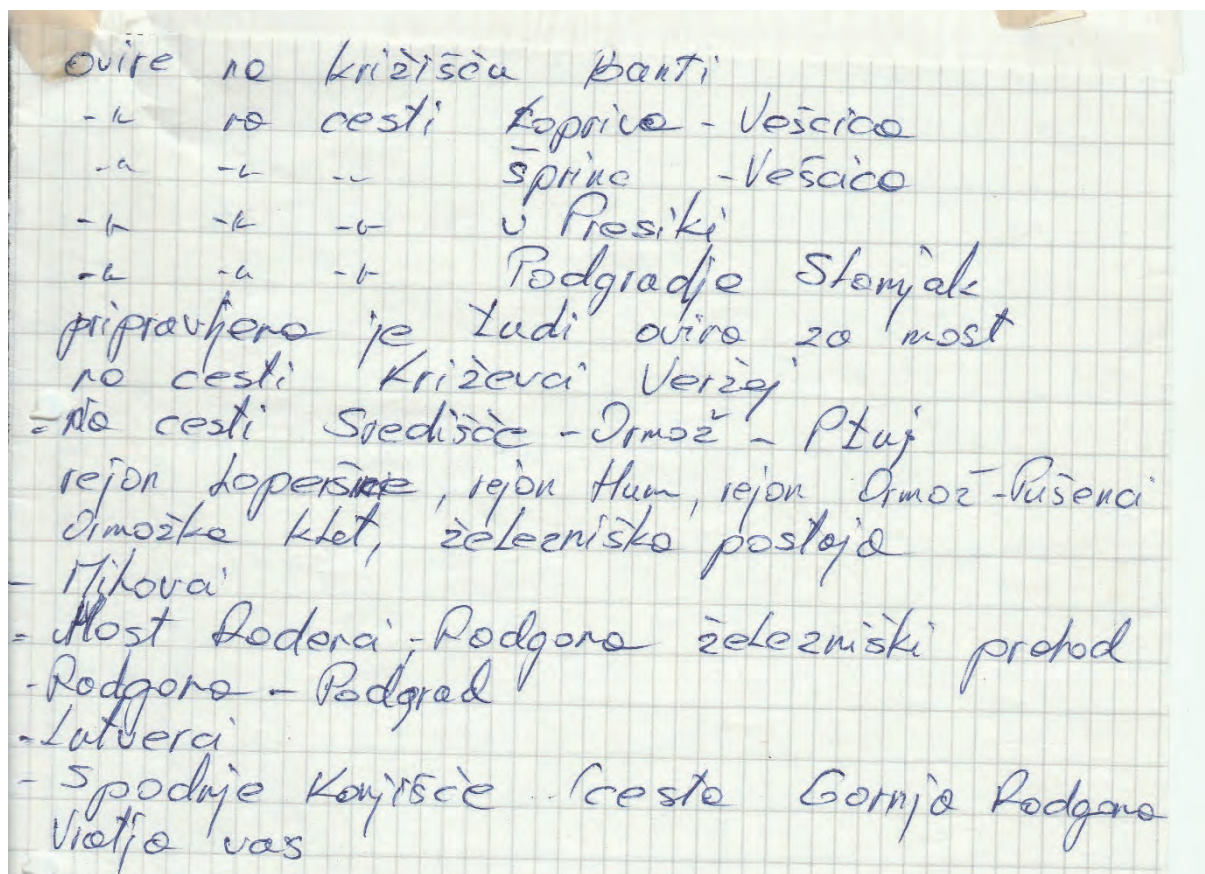 ovire na križišču Banti
-"- na cesti Kopriva - Veščica
-"- -"- -"- Šprinc - Veščica
-"- -"- -"- v Presiki
-"- -"- -"- Podgradje Slamjak
pripravljena je tudi ovira za most
na cesti Križevci Veržej
- Na cesti Središče - Ormož - Ptuj
rejon Loperšice, rejon Hum, rejon Ormož - Pušenci
Ormožka klet, železniška postaja
- Mihovci
- Most Radenci - Radgona železniški prehod
- Radgona - Podgrad
- Lutverci
- Spodnje Konjišče (cesta Gornja Radgona
Vratja vas